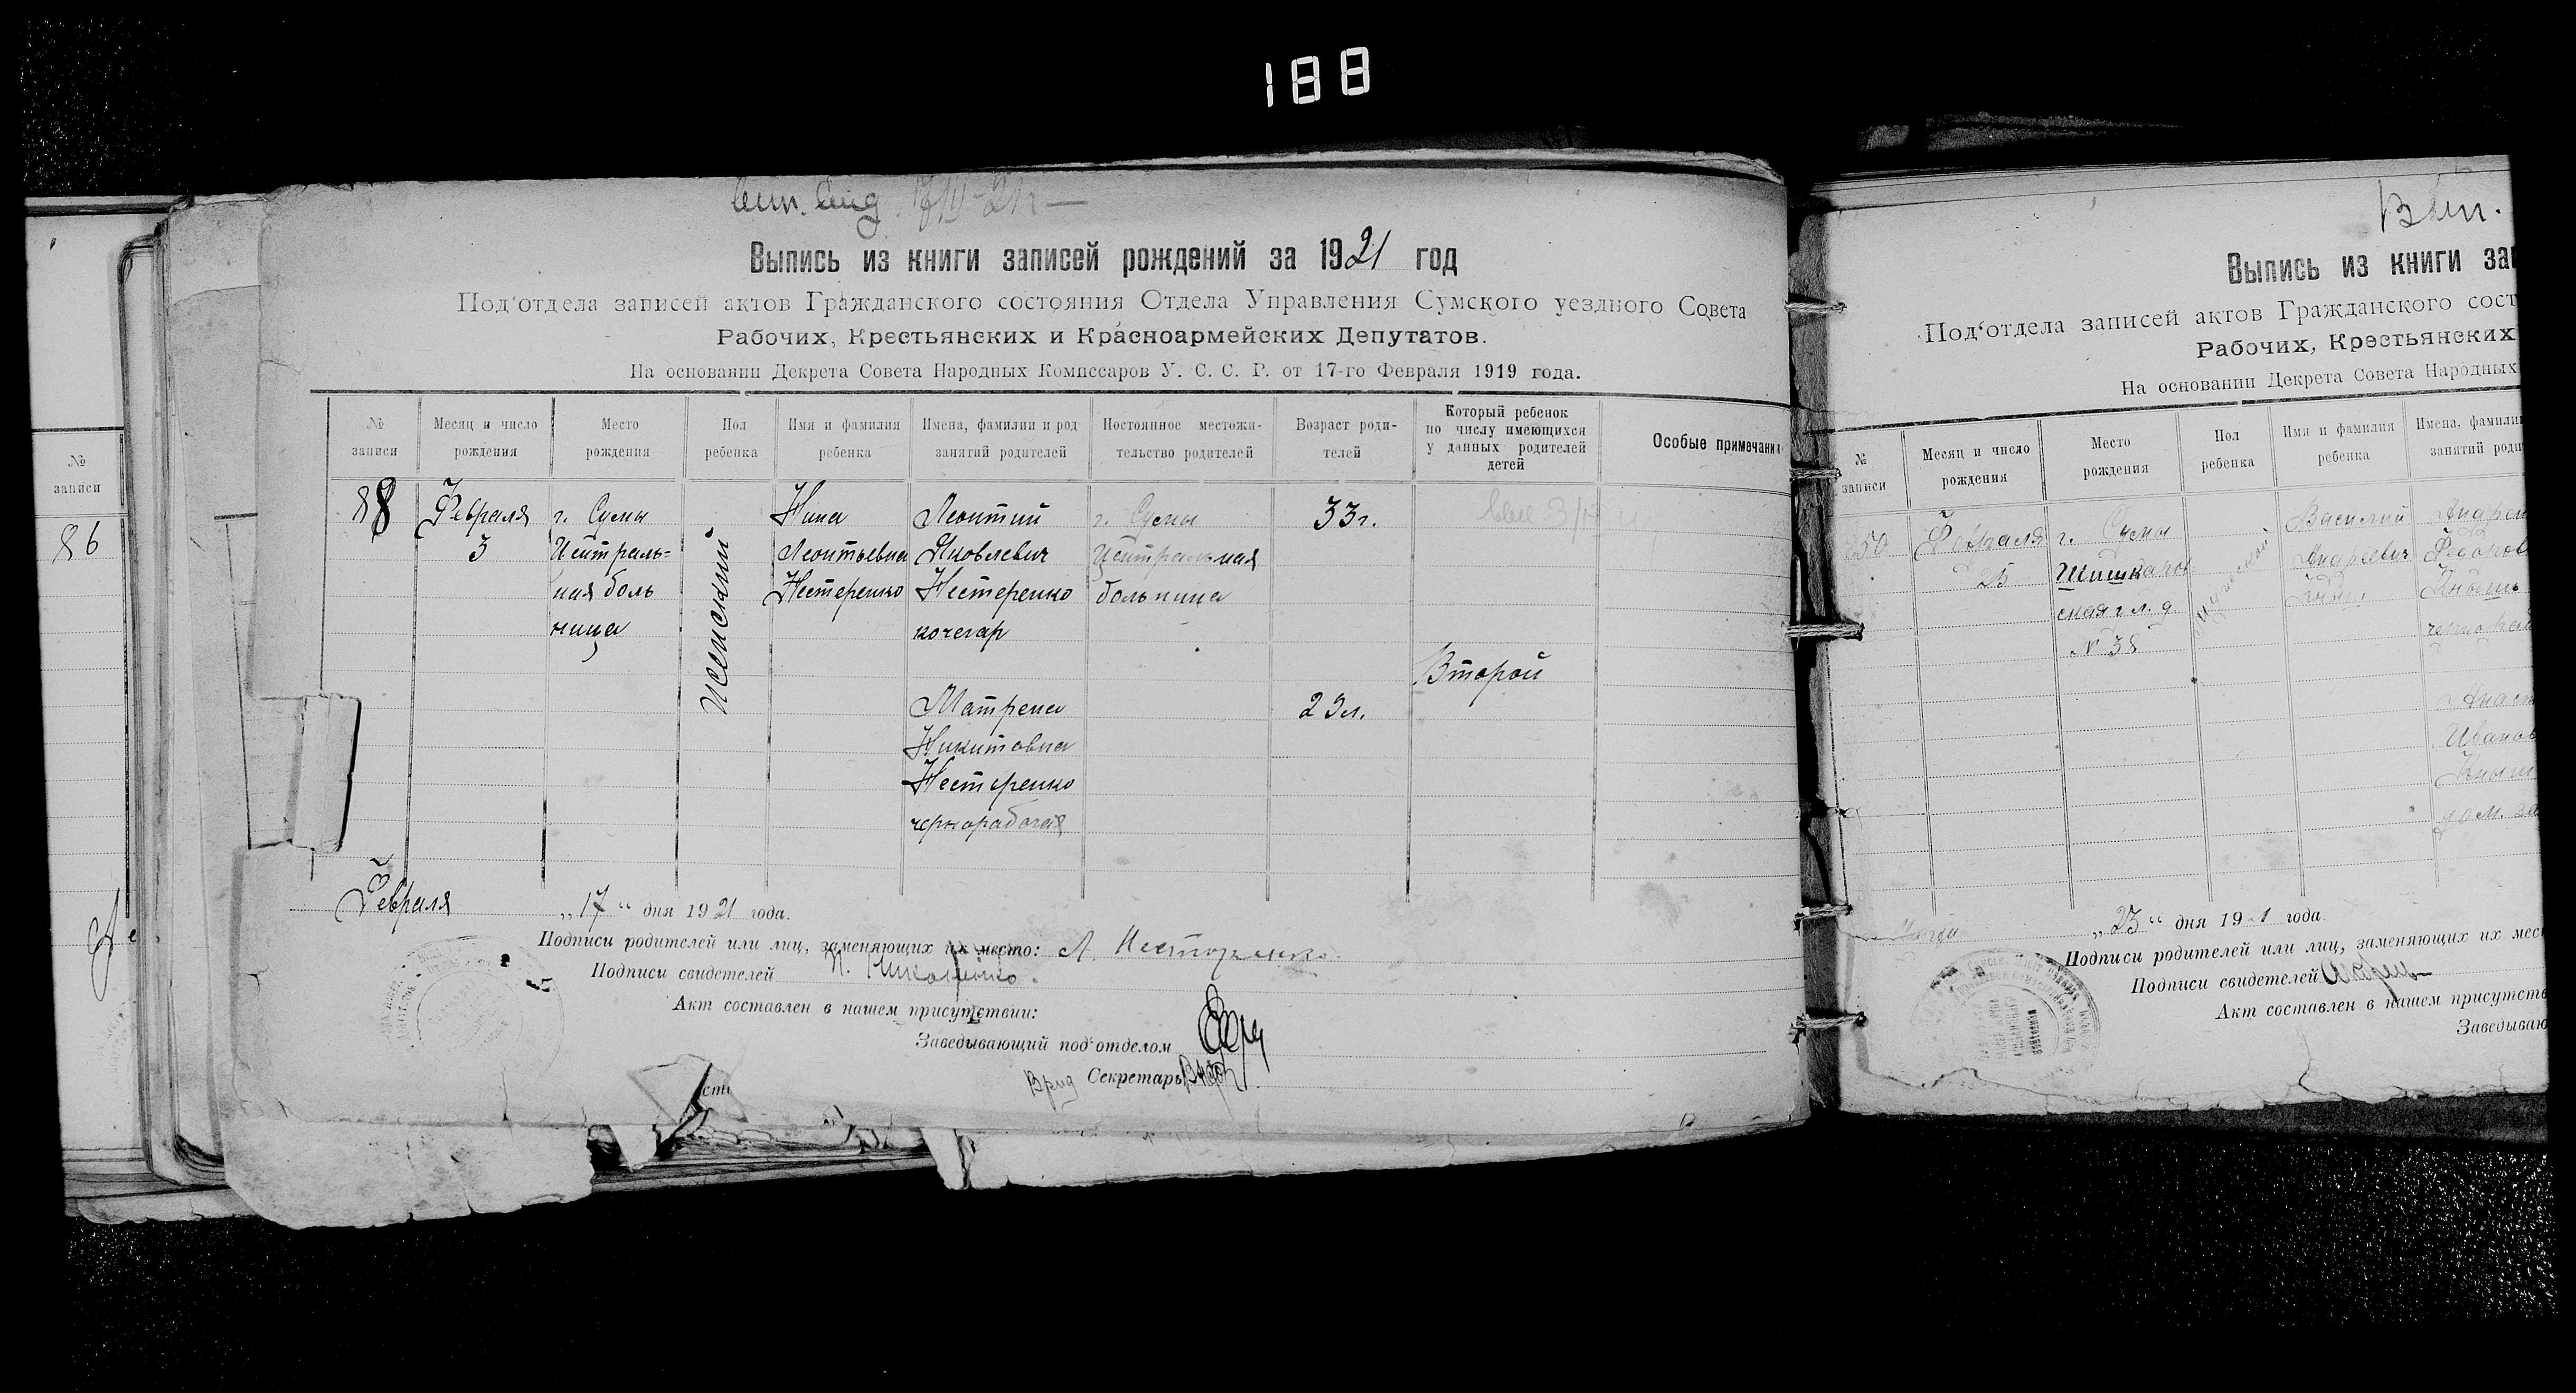 188
Выпись из книги записей рождений за 1921 год
Под‘отдела записей актов Гражданского состояния Отдела Управления Сумского уездного Совета
Рабочих, Крестьянских и Красноармейских Депутатов.
На основании Декрета Совета Народных Комиссаров У. С. С. Р. от 17-го Февраля 1919 года.
№ записи
Месяц и число рождения
Место рождения
Пол ребенка
Имя и фамилия ребенка
Имена, фамилии и род занятий родителей
Постоянное местожительство родителей
Возраст родителей
Который ребенок по числу имеющихся у данных родителей детей
Особые примечани
88
Февраля
3
г. Сумы
Централь-
ная боль
ница
Женский
Нина
Леонтьевна
Нестеренко
Леонтий
Яковлевич
Нестеренко
кочегар
г. Сумы
Центральная
больница
33г.
Второй
Матрена
Никитовна
Нестеренко
чернорабочая
29л.
Февраля „17“ дня 1921 года.
Подписи родителей или лиц, заменяющих их место: Л. Нестеренко
Подписи свидетелей
Акт составлен в нашем присутствии:
Заведывающий под‘отделом
Врид Секретарь
№
записи
86
Вып.
Выпись из книги за
Под‘отдела записей актов Гражданского сост
Рабочих, Крестьянских
На основании Декрета Совета Народных
№ записи
Месяц и число рождения
Место рождения
Пол ребенка
Имя и фамилия ребенка
Имена, фамили
занятий роди
Февраля
25
г. Сумы
ская ул. д.
№ 38
Василий
Андреевич
„23“ дня 19 1 года.
Подписи родителей или лиц, заменяющих их мес
Подписи свидетелей
Акт составлен в нашем присутств
Заведываю